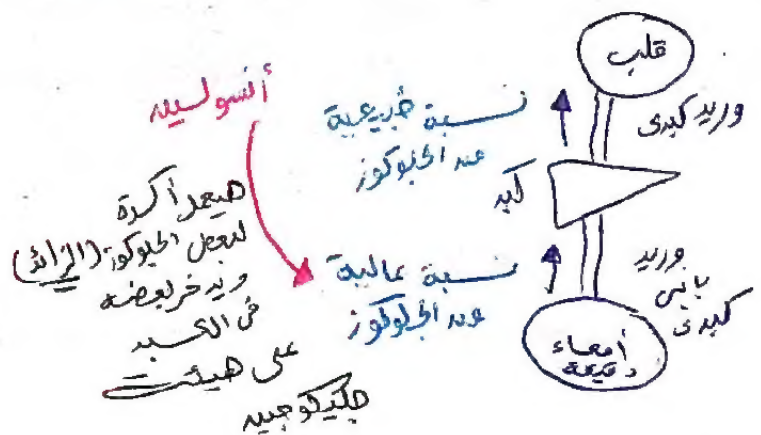 قلب
وريد كبدى
كبد
وريد
بابى
كبدى
أمعاء
دقيقة
نسبة طبيعية
من الجلوكوز
نسبة عالية
من الجلوكوز
أنسولين
هيعمل أكسدة
لبعض الجلوكوز (الزائد)
ويدخر بعضه
فى الكبد
على هيئة
جليكوجين